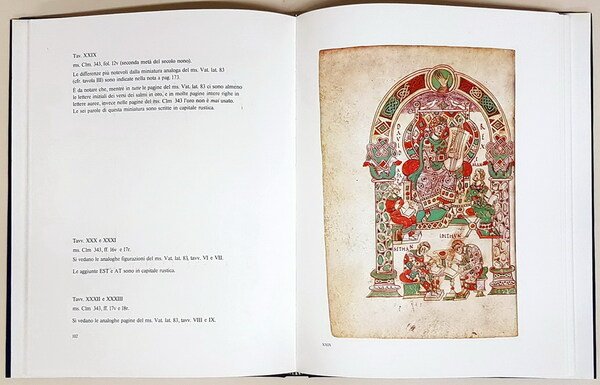 Tav. XXIX
ms. Clm. 343, fol. 12v (seconda metà del secolo nono).
Le differenze più notevoli dalla miniatura analoga del ms. Vat. lat. 83
(cfr. tavola III) sono indicate nella nota a pag. 173.
È da notare che, mentre in tutte le pagine del ms. Vat. lat. 83 ci sono almeno
le lettere iniziali dei versi dei salmi in oro, e in molte pagine intere righe in
lettere auree, invece nelle pagine del ms. Clm 343 l'oro non è mai usato.
Le sei parole di questa miniatura sono scritte in capitale rustica.
Tavv. XXX e XXXI
ms. Clm 343, ff. 16v e 17r.
Si vedano le analoghe figurazioni del ms. Vat. lat. 83, tavv. VI e VII.
Le aggiunte EST e AT sono in capitale rustica.
Tavv. XXXII e XXXIII
ms. Clm 343, ff. 17v e 18r.
Si vedano le analoghe pagine del ms. Vat. lat. 83, tavv. VIII e IX.
102
DAVID
REX
ASAPH
AEMAN
ETHAN
IDITHUN
XXIX